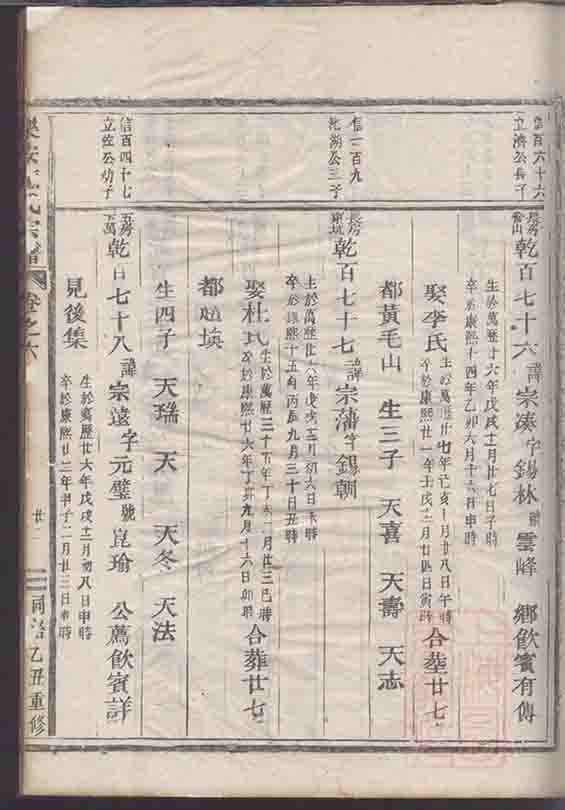 信百六十六
立濟公長子
長房
乾百七十六諱宗湊字錫林號雲峰 鄉飲賓有傳
生於萬歷廿六年戊戌十一月廿七日子時
卒於康熙十四年乙卯六月十六日申時
娶李氏
生於萬歷廿七年己亥十月廿八日午時
卒於康熙廿一年壬戌二月廿四日寅時
合塟廿七
都黃毛山 生三子 天喜 天壽 天志
信一百九
池湖公三子
長房
乾百七十七諱宗藩字錫朝
生於萬歷廿六年戊戌三月初六日未時
卒於康熙十五年丙辰九月三十日丑時
娶杜氏
生於萬歷三十五年丁未二月廿三巳時
卒於康熙廿六年丁卯九月十六日卯時
合葬廿七
都
生四子 天瑞 天 天冬 天法
信百四十七
立位公幼子
五房
下萬
乾百七十八諱宗遠字元璧號崑瑜 公薦飲賓詳
生於萬歷廿六年戊戌十二月初八日申時
卒於康熙廿三年甲子二月廿三日申時
見後集
氏宗譜
卷之六
廿二
同治乙丑重修